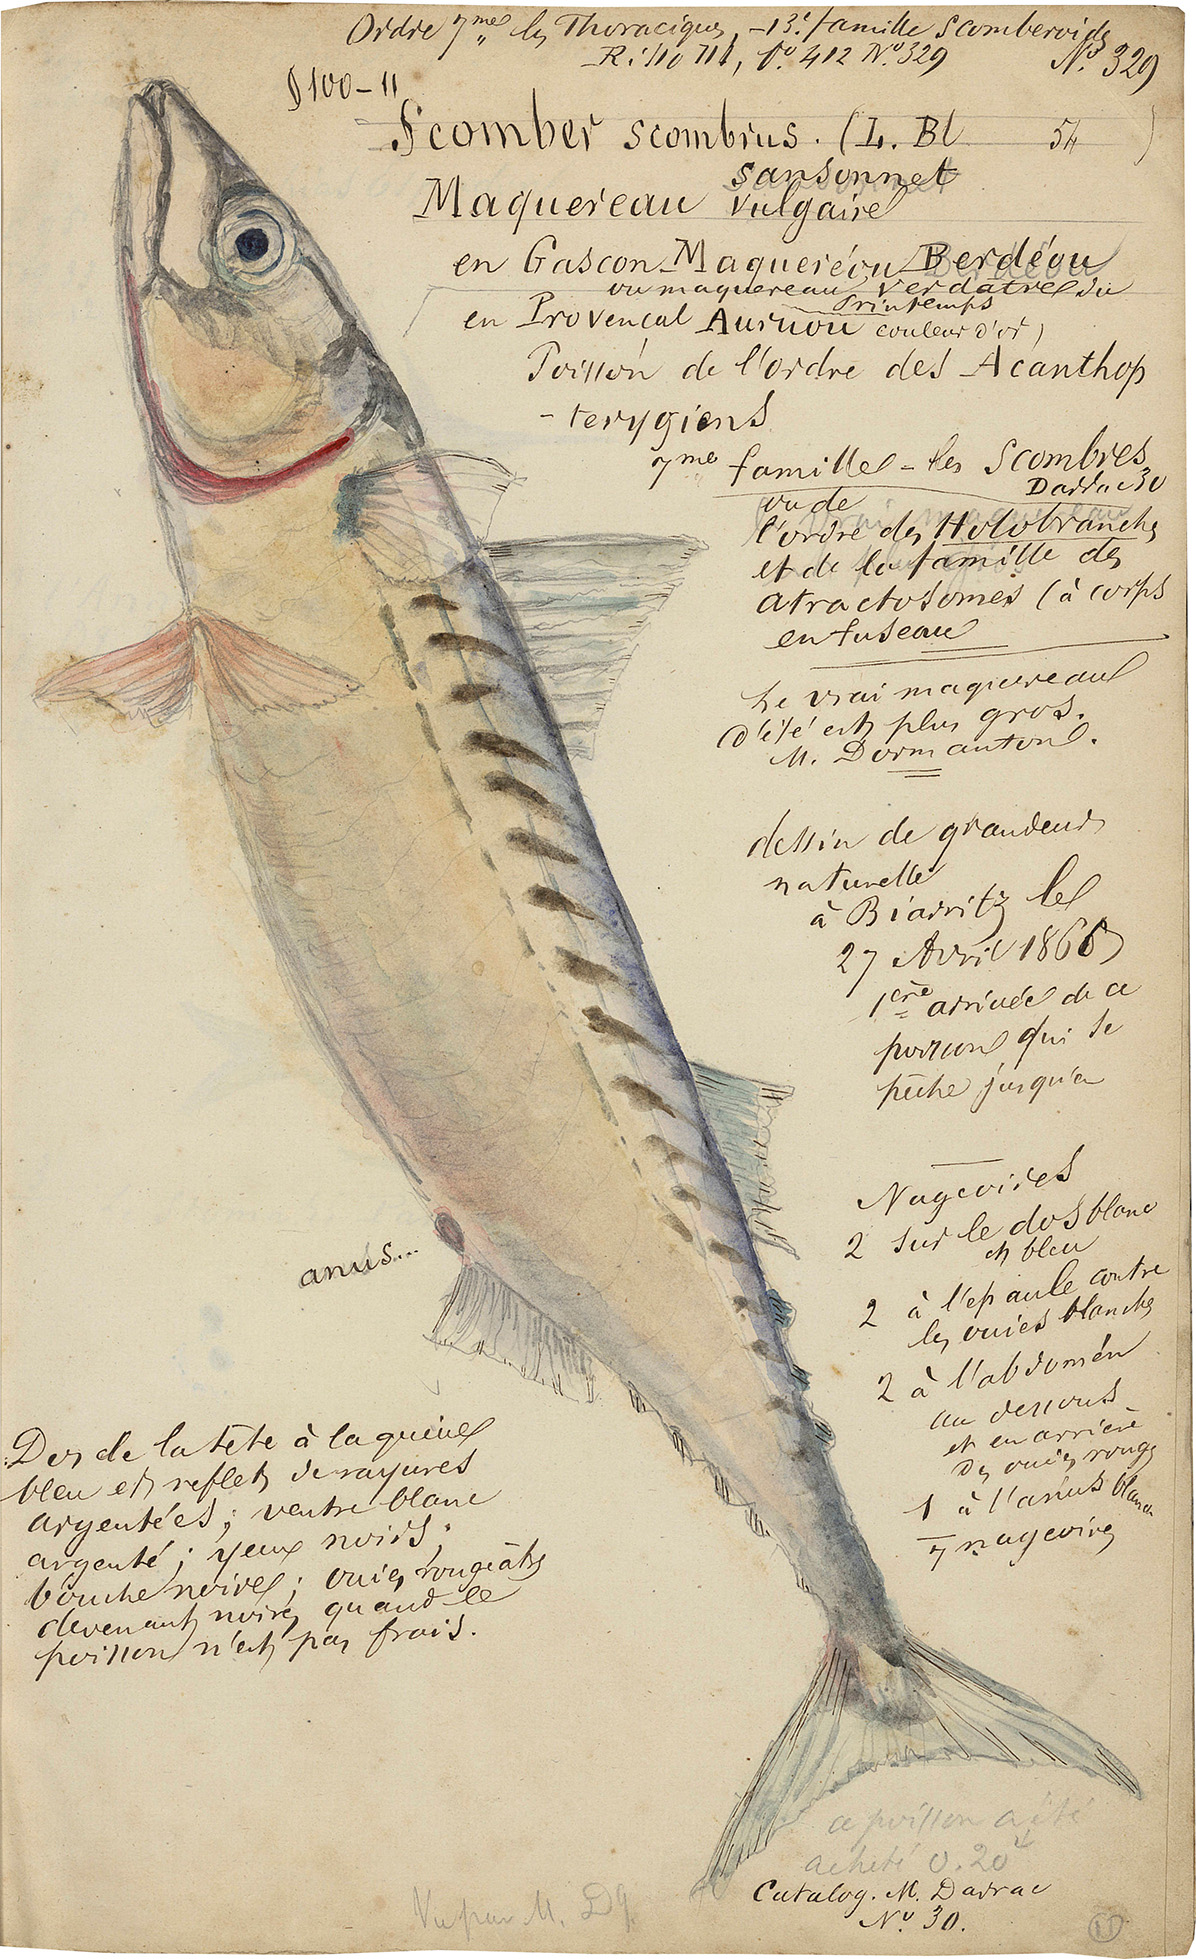 Ordre 7me les Thoraciques, -13e famille Scomberoides
Risso 711, Po. 412 No. 329
No. 329
§ 100-11
Scomber scombrus. (L. Bl 54 )
sansonnet
Maquereau vulgaire
en Gascon Maqueréou Berdéou
ou maquereau verdatre du
Printemps
en Provençal Auruou couleur d'or)
Poisson de l'ordre des Acanthop
-terygiens
7me famille - les Scombres
Darrac 30
ou de
l'ordre des Holobranches
et de la famille des
atractosomes (à corps
en fuseau
Le vrai maquereau
d'été est plus gros.
M. Dormanton.
dessin de grandeur
naturelle
à Biarritz le
27 Avril 1866
1ere arrivée de ce
poisson qui se
pêche jusqu'en
Nageoires
2 sur le dos blanc
et bleu
2 à l'epaule contre
les ouies blanches
2 à l'abdomen
au dessous
et en arriere
des ouies rouges
1 à l'anus blanche
7 nageoires
anus...
Dos de la tête à la queue
bleu et reflets de rayures
argentées; ventre blanc
argenté; yeux noirs;
bouche noire; ouies rougeâtres
devenant noires quand le
poisson n'est pas frais.
ce poisson a été
acheté 0.20
Catalog. M. Darrac
No. 30.
Vu par M. Dq.
11